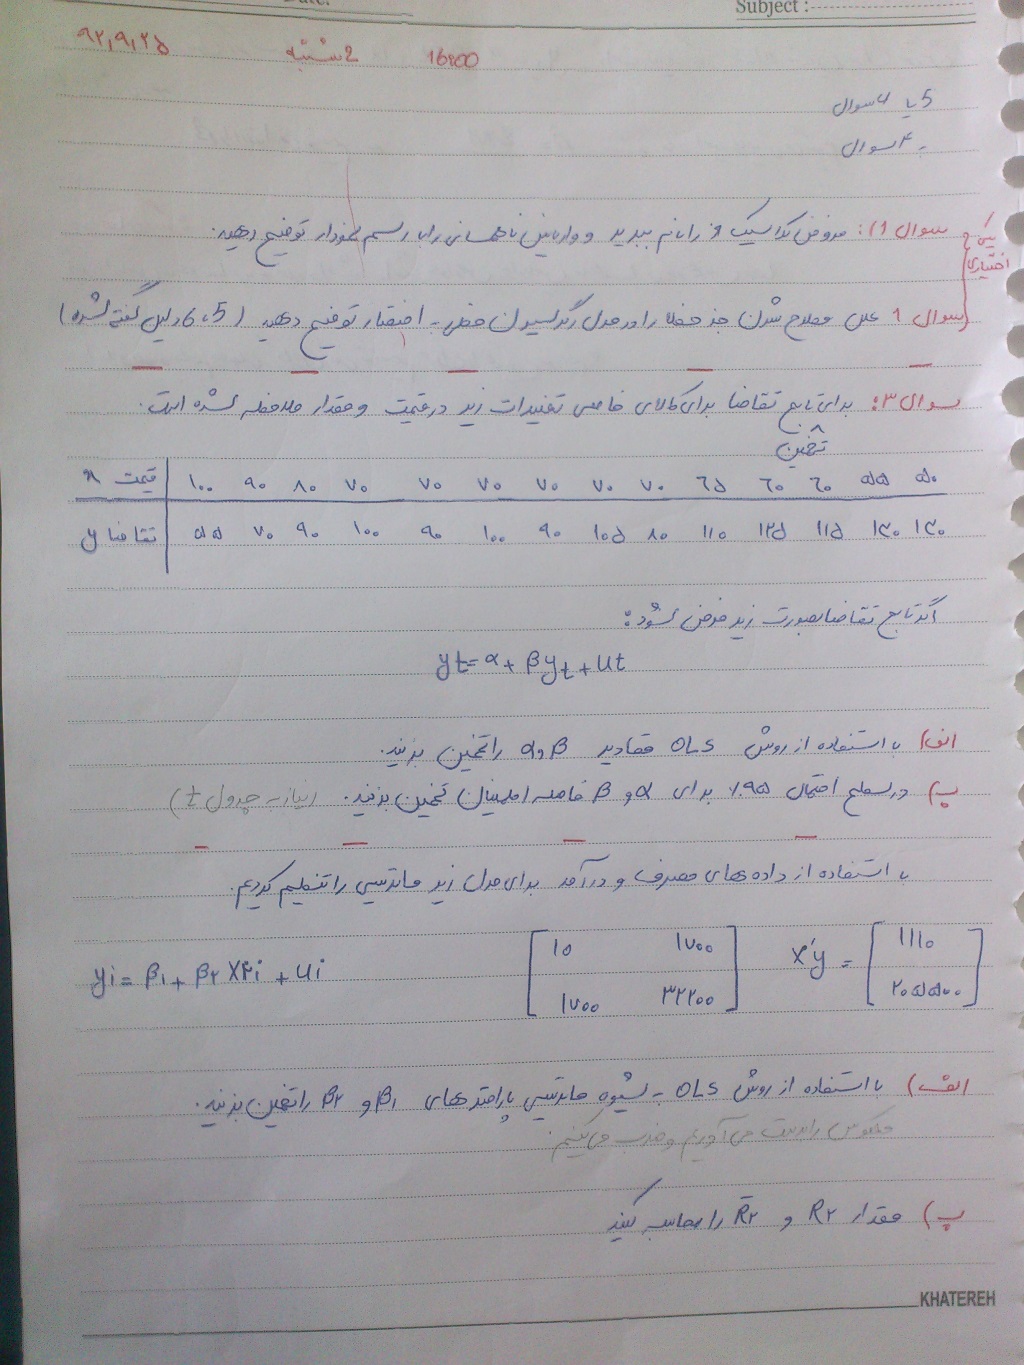 Date:
Subject :
۹۲,۹,۲۵ 2شنبه 16:00
5 یا ۶ سوال
۴ سوال
یکی اختیاری
سوال ۱): فروض کلاسیک را نام ببرید و واریانس ناهمسانی را با رسم نمودار توضیح دهید.
سوال ۱ علل مطرح شدن جز خطا را در مدل رگرسیون خطی به اختصار توضیح دهید (5 ، 6 دلیل گفته شده)
سوال ۳: برای تابع تقاضا برای کالای خاصی تغییرات زیر در قیمت و مقدار ملاحظه شده است.
تخمین
قیمت x ۱۰۰ ۹۰ ۸۰ ۷۰ ۷۰ ۷۰ ۷۰ ۷۰ ۷۰ ۶۵ ۶۰ ۶۰ ۵۵ ۵۰
تقاضا y ۵۵ ۷۰ ۹۰ ۱۰۰ ۹۰ ۱۰۰ ۹۰ ۱۰۵ ۸۰ ۱۱۰ ۱۲۵ ۱۱۵ ۱۳۰ ۱۳۰
اگر تابع تقاضا بصورت زیر فرض شود:
yt = α + βyt + ut
الف) با استفاده از روش OLS مقادیر α و β را تخمین بزنید.
ب) در سطح احتمال ۹۵٪ برای α و β فاصله اطمینان تخمین بزنید. (نیاز به جدول t)
با استفاده از داده های مصرف و درآمد برای مدل زیر ماتریسی را تنظیم کردیم.
yi = β۱ + β۲ X۲i + ui [ ۱۰ ۱۷۰۰ x'y = [ ۱۱۱۰
۱۷۰۰ ۳۲۲۰۰ ] ۲۰۵۵۰۰ ]
الف) با استفاده از روش OLS به شیوه ماتریسی پارامترهای β۱ و β۲ را تخمین بزنید.
معکوس را بدست می آوریم و ضرب می کنیم.
ب) مقدار R۲ و R̄۲ را محاسبه کنید
KHATEREH